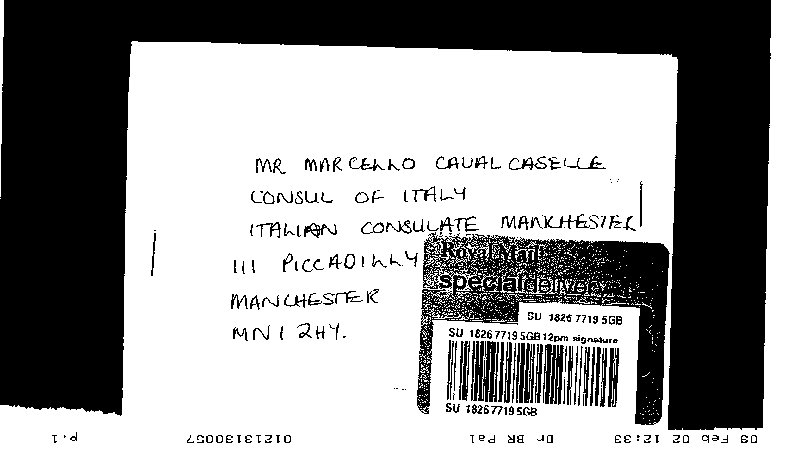 MR MARCELLO CAVALCASELLE
CONSUL OF ITALY
ITALIAN CONSULATE MANCHESTER
111 PICCADILLY
MANCHESTER
MN1 2HY.
Royal Mail
specialdelivery
SU 1826 7719 5GB
SU 1826 7719 5GB 12pm signature
SU 1826 7719 5GB
09 Feb 02 12:33 Dr BR Pal 01213130057 p.1